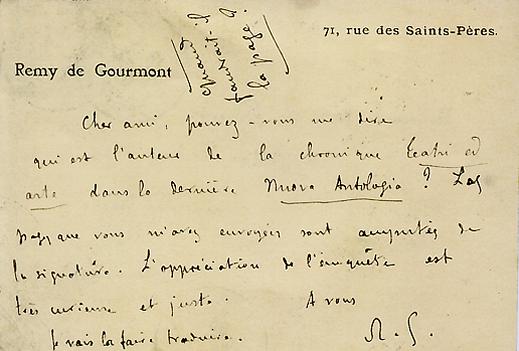 71, rue des Saints-Pères.
Remy de Gourmont
Quand
faudrait-il
la page?
Cher ami, pouvez-vous me dire
qui est l'auteur de la chronique Teatri ed
arte dans la dernière Nuova Antologia ? Les
pages que vous m'avez envoyées sont amputées de
la signature. L'appréciation de l'enquête est
très curieuse et juste. A vous
Je vais la faire traduire. R. G.